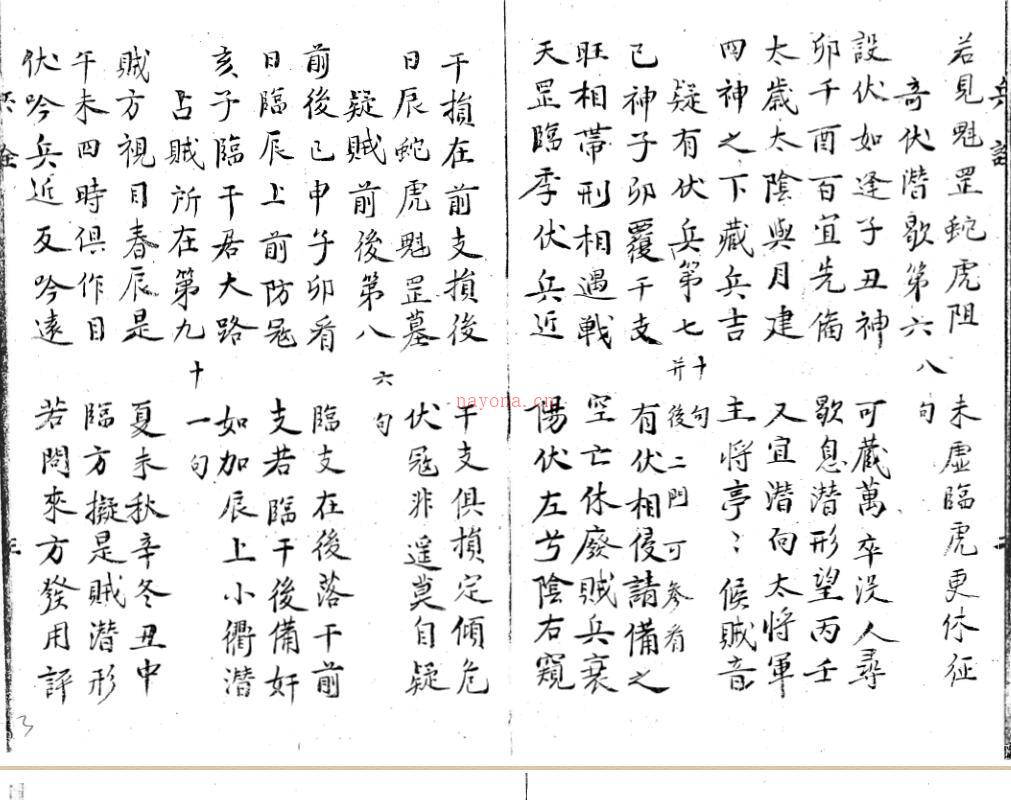 若見魁罡蛇虎阻　未虛臨虎更休征
奇伏潛歌第六　八句
設伏如逢子丑神　可蔵萬卒没人尋
卯千酉百宜先偹　歇息潛形望丙壬
太歲太陰與月建　又宜潛向太將軍
四神之下藏兵吉　主將亭〻候賊音
疑有伏兵第七　十句并後二門可參看
已神子卯覆干支　有伏相侵請備之
旺相帶刑相遇戰　空亡休廢賊兵衰
天罡臨季伏兵近　陽伏左兮陰右窺
干損在前支損後　干支俱損定傾危
日辰蛇虎魁罡墓　伏冦非遥莫自疑
疑賊前後第八　六句
前後已申子卯看　臨支在後落干前
日臨辰上前防冦　支若臨干後備奸
亥子臨干居大路　如加辰上小衢潛
占賊所在第九　十一句
賊方視目春辰是　夏未秋辛冬丑中
午未四時俱作目　臨方擬是賊潛形
伏吟兵近反吟遠　若問來方發用評
三
nayona.cn
3